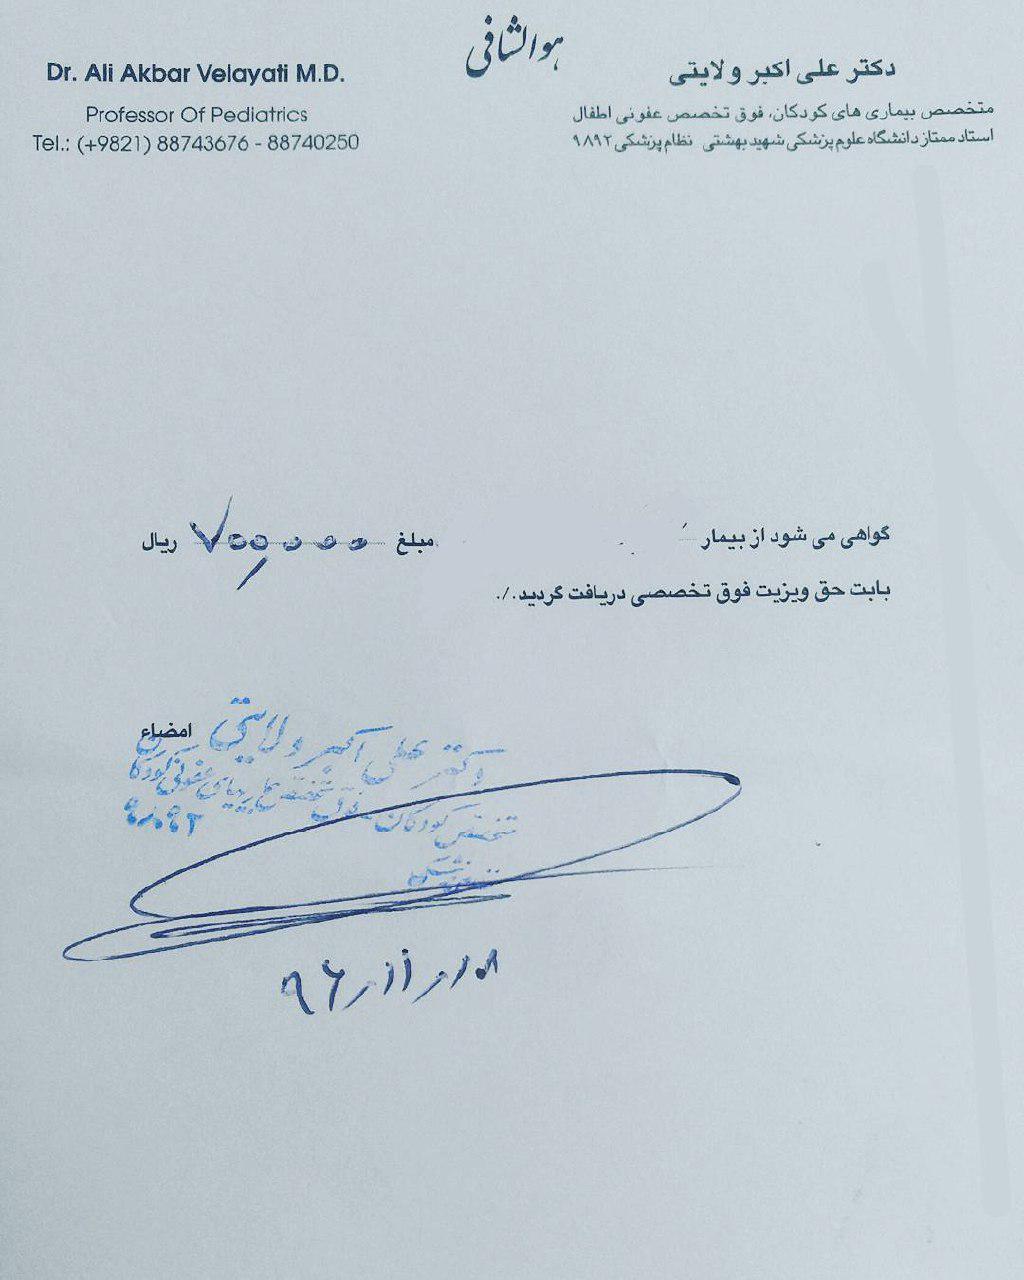 هوالشافی
دکتر علی اکبر ولایتی
متخصص بیماری های کودکان، فوق تخصص عفونی اطفال
استاد ممتاز دانشگاه علوم پزشکی شهید بهشتی نظام پزشکی ۹۸۹۲
Dr. Ali Akbar Velayati M.D.
Professor Of Pediatrics
Tel.: (+9821) 88743676 - 88740250
گواهی می شود از بیمار مبلغ ۷۰۰,۰۰۰ ریال
بابت حق ویزیت فوق تخصصی دریافت گردید./.
امضاء
دکتر علی اکبر ولایتی
متخصص کودکان فوق تخصص عفونی کودکان